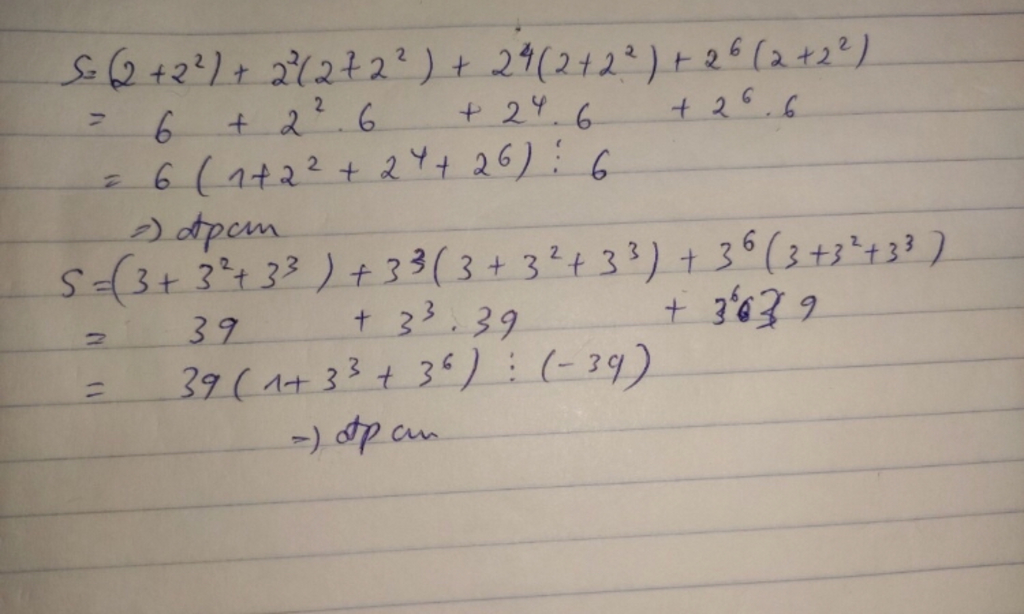 S=(2+2²)+2²(2+2²)+2⁴(2+2²)+2⁶(2+2²)
= 6 + 2².6 + 2⁴.6 + 2⁶.6
= 6(1+2²+2⁴+2⁶)⋮6
=) đpcm
S=(3+3²+3³)+3³(3+3²+3³)+3⁶(3+3²+3³)
= 39 + 3³.39 + 3⁶.39
= 39(1+3³+3⁶)⋮(-39)
=) đpcm